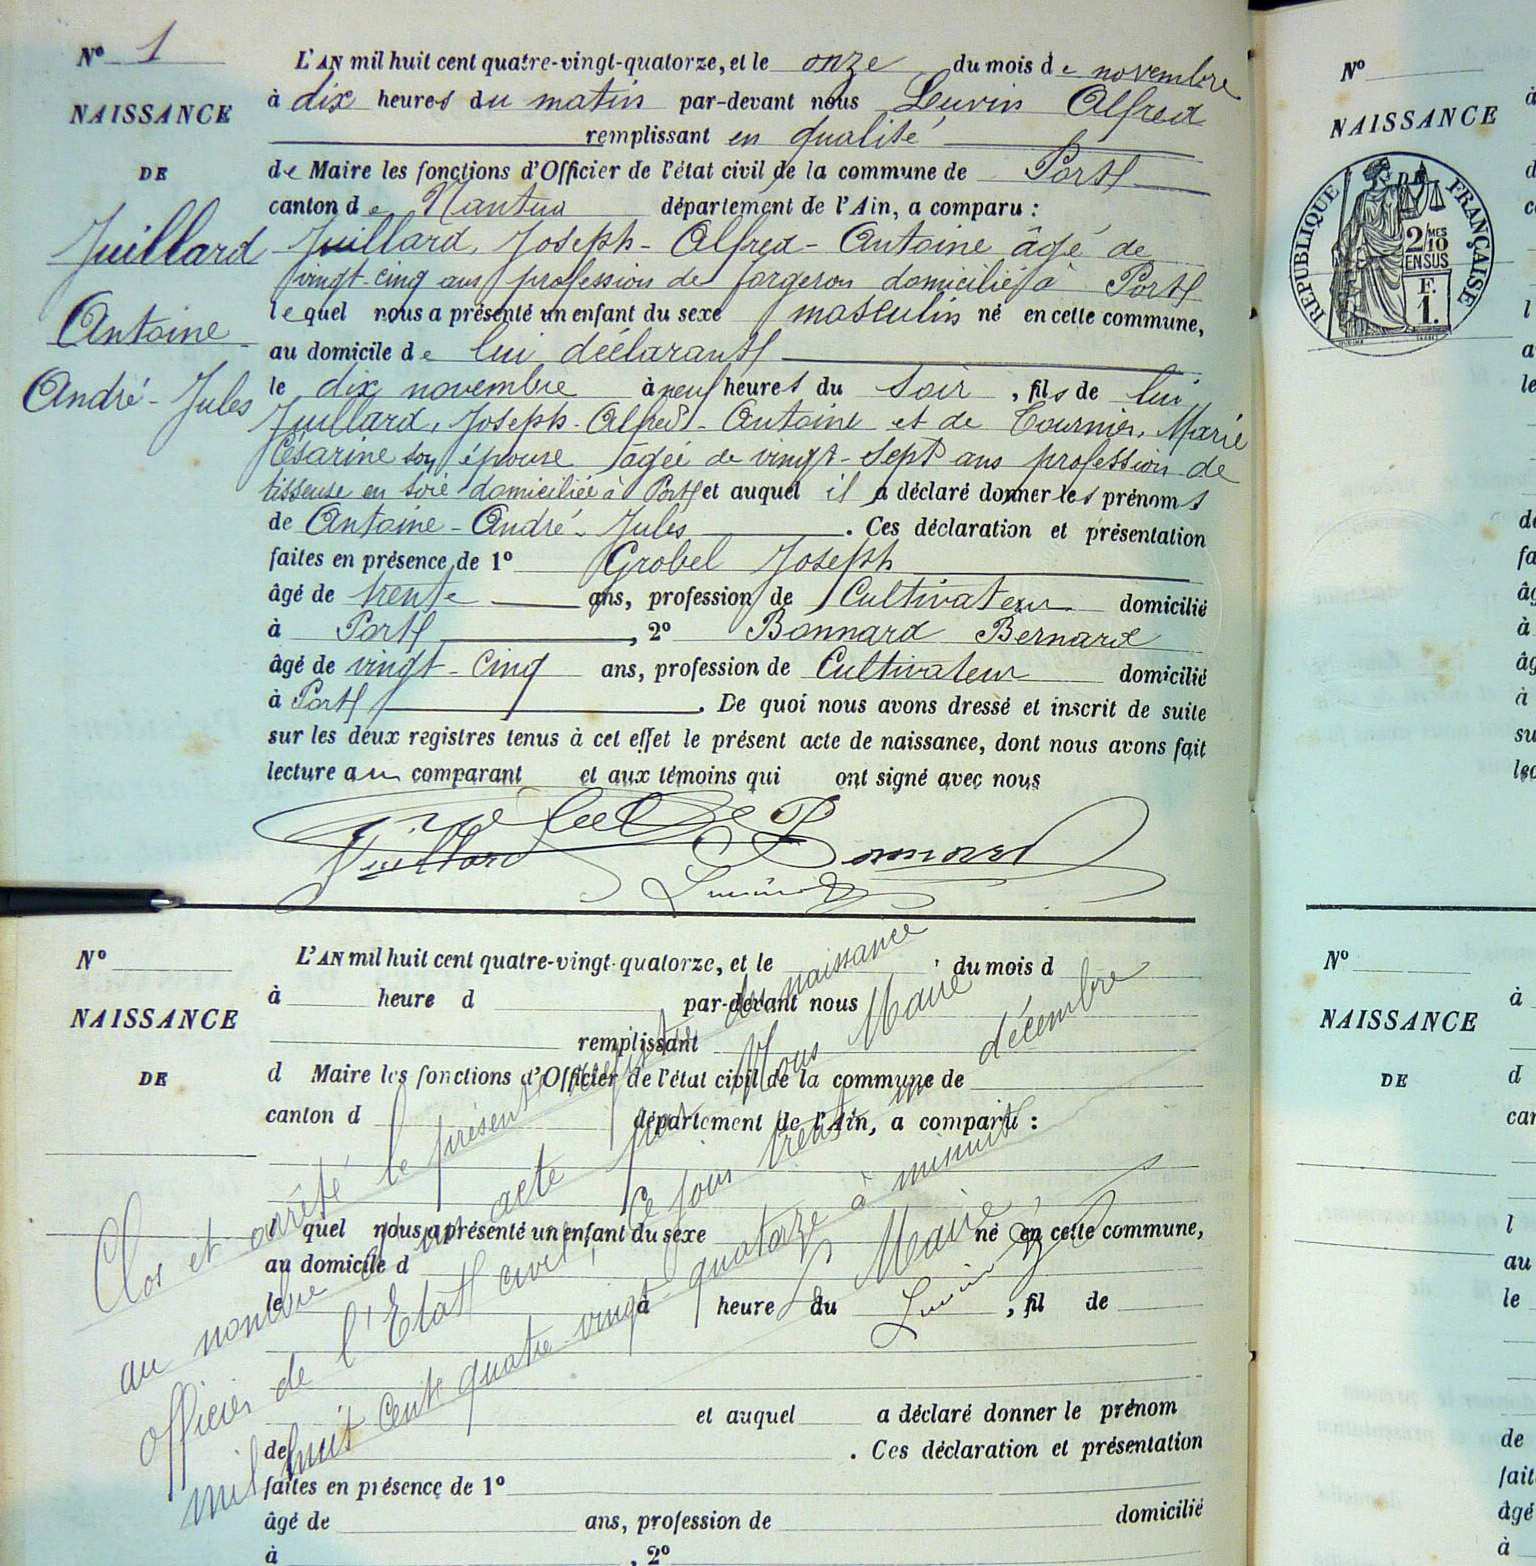 N° 1
NAISSANCE
DE
Juillard
Antoine
André - Jules
L'AN mil huit cent quatre-vingt-quatorze, et le onze du mois de novembre
à dix heures du matin par-devant nous Alfred
remplissant en qualité
de Maire les fonctions d'Officier de l'état civil de la commune de Port
canton de Nantua département de l'Ain, a comparu :
Juillard, Joseph - Alfred - Antoine âgé de
vingt-cinq ans profession de forgeron domicilié à Port
lequel nous a présenté un enfant du sexe masculin né en cette commune,
au domicile de lui déclarant
le dix novembre à neuf heures du soir, fils de lui
Juillard, Joseph - Alfred - Antoine et de Tournier, Marie
Césarine son épouse âgée de vingt-sept ans profession de
tisseuse en soie domiciliée à Port et auquel il a déclaré donner les prénoms
de Antoine - André - Jules . Ces déclaration et présentation
faites en présence de 1° Grobel Joseph
âgé de trente ans, profession de Cultivateur domicilié
à Port , 2° Bonnard Bernard
âgé de vingt-cinq ans, profession de Cultivateur domicilié
à Port . De quoi nous avons dressé et inscrit de suite
sur les deux registres tenus à cet effet le présent acte de naissance, dont nous avons fait
lecture au comparant et aux témoins qui ont signé avec nous
Juillard Bonnard
N°
NAISSANCE
DE
L'AN mil huit cent quatre-vingt-quatorze, et le du mois d
à heure d par-devant nous
remplissant
d Maire les fonctions d'Officier de l'état civil de la commune de
canton d département de l'Ain, a comparu :
l quel nous a présenté un enfant du sexe né en cette commune,
au domicile d
le à heure du , fil de
et auquel a déclaré donner le prénom
de . Ces déclaration et présentation
faites en présence de 1°
âgé de ans, profession de domicilié
à , 2°
Clos et arrêté le présent registre de naissance
au nombre d'un acte par Nous Maire
officier de l'Etat civil, ce jour trente un décembre
mil huit cent quatre vingt quatorze à minuit
Le Maire
N°
NAISSANCE
RÉPUBLIQUE FRANÇAISE
2/10 MES
EN SUS
F.
1.
N°
NAISSANCE
DE